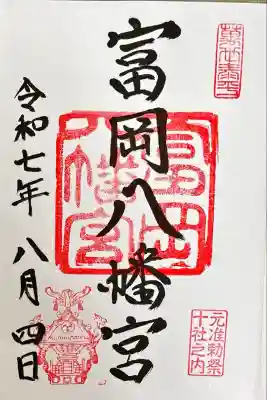 富岡八幡宮
富岡
八幡宮
元准勅祭
十社之内
令和七年 八月四日